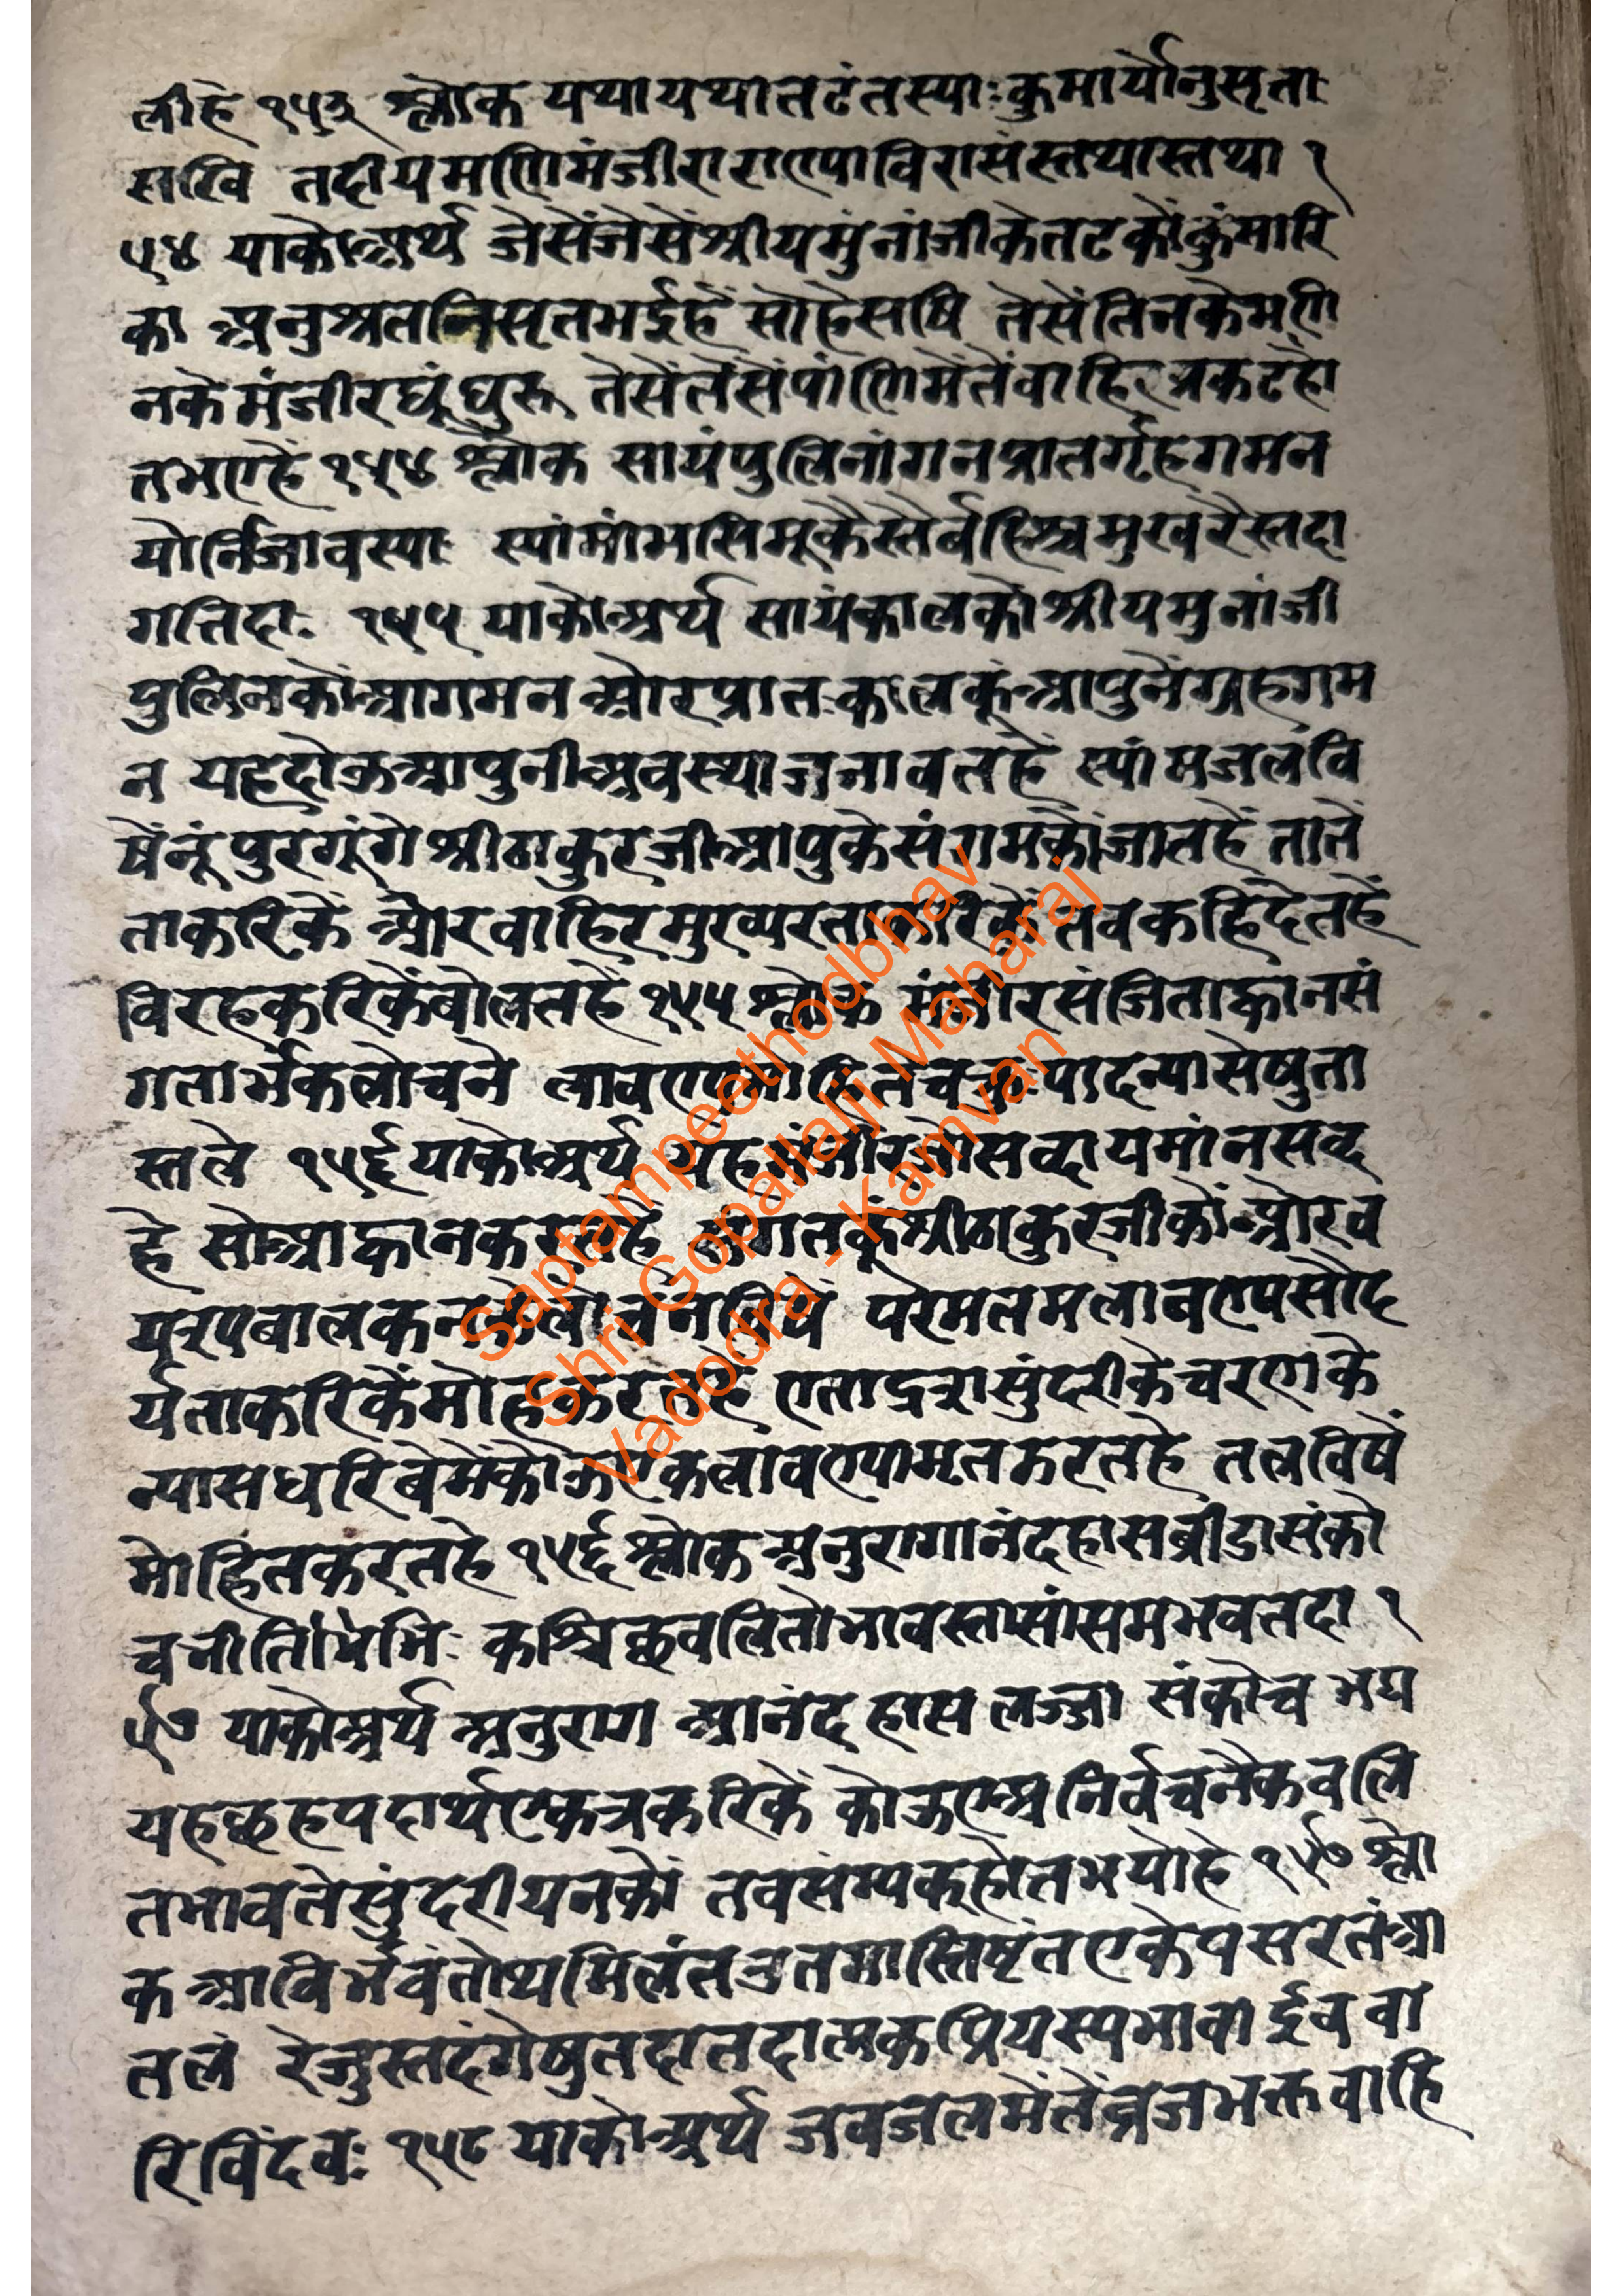 लीहे १५३ श्लोक यथायथातटंतस्याःकुमार्योनुसृता
सखि तदीयमणिमंजीराराण्याविरासंस्तथास्तथा १
५४ याकोअर्थ जेसेंजेसेंश्रीयमुंनांजीकेतटकोंकुंमारि
का अनुश्रतनिसृतभईहें सोहेसषि तेसेंतिनकेमणि
नकेमंजीरघूंघुरु तेसेंतेंसेंपांणिमेंतेंवाहिरप्रकटहो
तभएहें १५४ श्लोक सायंपुलिनांगनप्रातर्गृहगमन
योर्निजावस्थाः स्यांमांभसिमूकैस्तैर्बहिश्चमुखरैस्तदा
गतिदाः १५५ याकोअर्थ सायंकालकोश्रीयमुनांजी
पुलिनकोंआगमन औरप्रातःकालकूंआपुनेंग्रहगम
न यहदोऊआपुनीअवस्थाजनावतहें स्यांमजलवि
षेंनूंपुरगूंगेश्रीठाकुरजीआपुकेसंगमकोंजातहें तातें
ताकरिकें औरवाहिरमुख्यरताकरिकें तवकहिंदेतहें
विरहकरिकेंबोलतहें १५५ श्लोक मंजीरसंजिताह्वानसं
गतार्भकलोचने लावण्यमोहितेचक्रुःपादन्यासेषुता
स्तले १५६ याकोअर्थ यहमंजीरजोसब्दायमांनसब्द
हे सोआह्वानकरतहे संगतकूंश्रीठाकुरजीकोंऔरव
यरूपबालकनकेलोचनविषें परमतमलावण्यसौंद
र्यताकरिकेंमोहकरतहें एताद्रशसुंदरीकेचरणके
न्यासधरिबेमेंकोऊएकलावण्यामृतझरतहे तलविषें
मोहितकरतहे १५६ श्लोक अनुरागानंदहासब्रीडासंको
चनीतिभिः कश्चिच्छवलितोभावस्तासांसमभवत्तदा १
५७ याकोअर्थ अनुराग आनंद हास लज्जा संकोच भय
यहछहपदार्थएकत्रकरिकें कोऊएअनिर्वचनैकवलि
तभावतेसुंदरीयनकों तवसंम्यक्होतभयोहे १५७ श्लो
क आविर्भवंतोथमिलंतउतमास्तिष्टंतएकेपसरतंआ
तलं रेजुस्तदंगेषुतदातदात्मकप्रियस्यभावाईववा
रिविंदवः १५८ याकोअर्थ जवजलमेंतेंव्रजभक्तवाहि
Saptampeethodbhav
Shri Gopallalji Maharaj
Vadodra - Kamvan